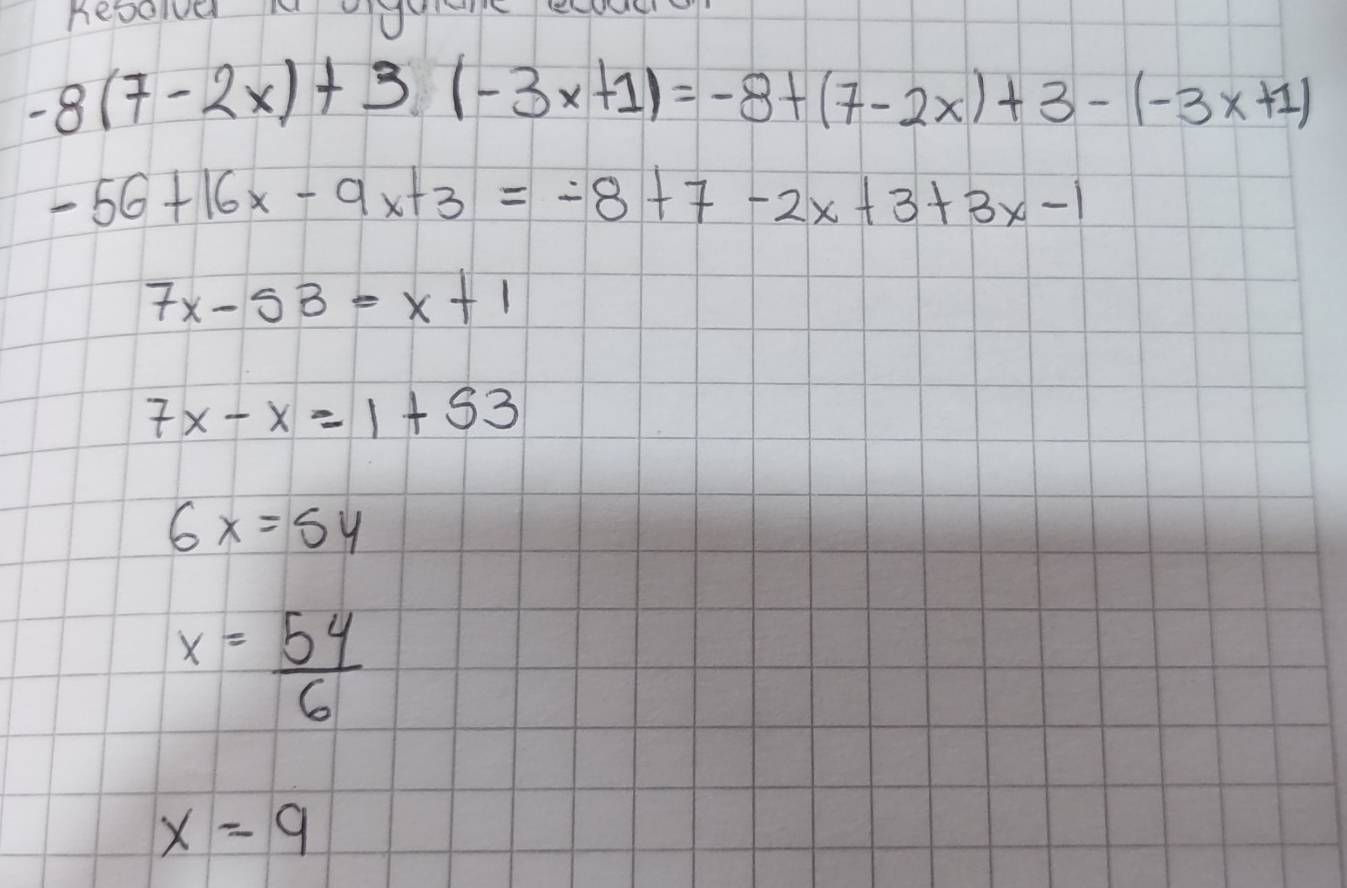 Resolver la siguiente ecuación
-8(7-2x)+3(-3x+1)=-8+(7-2x)+3-(-3x+1)
-56+16x-9x+3=-8+7-2x+3+3x-1
7x-53=x+1
7x-x=1+53
6x=54
x=54/6
x=9